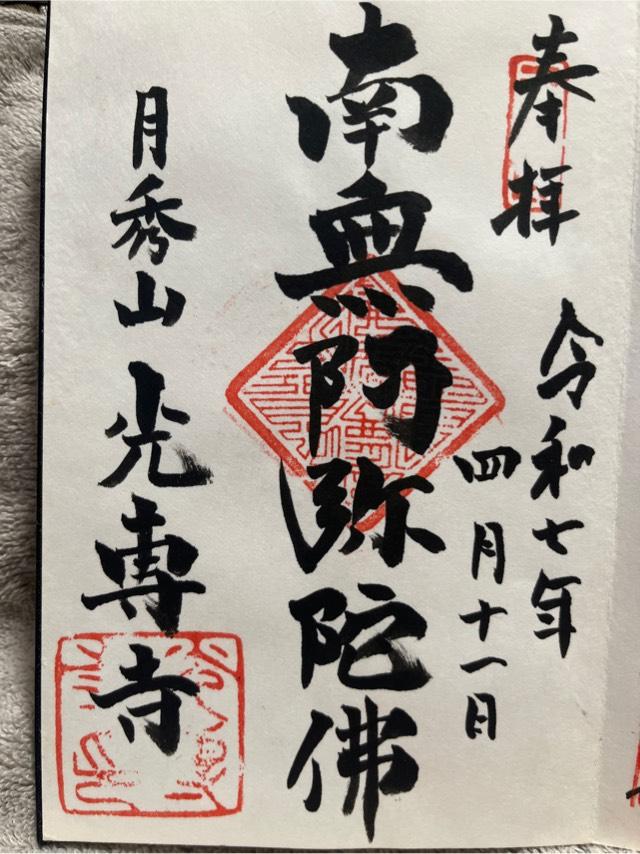 奉拝
令和七年
四月十一日
南無阿弥陀佛
月秀山 光専寺